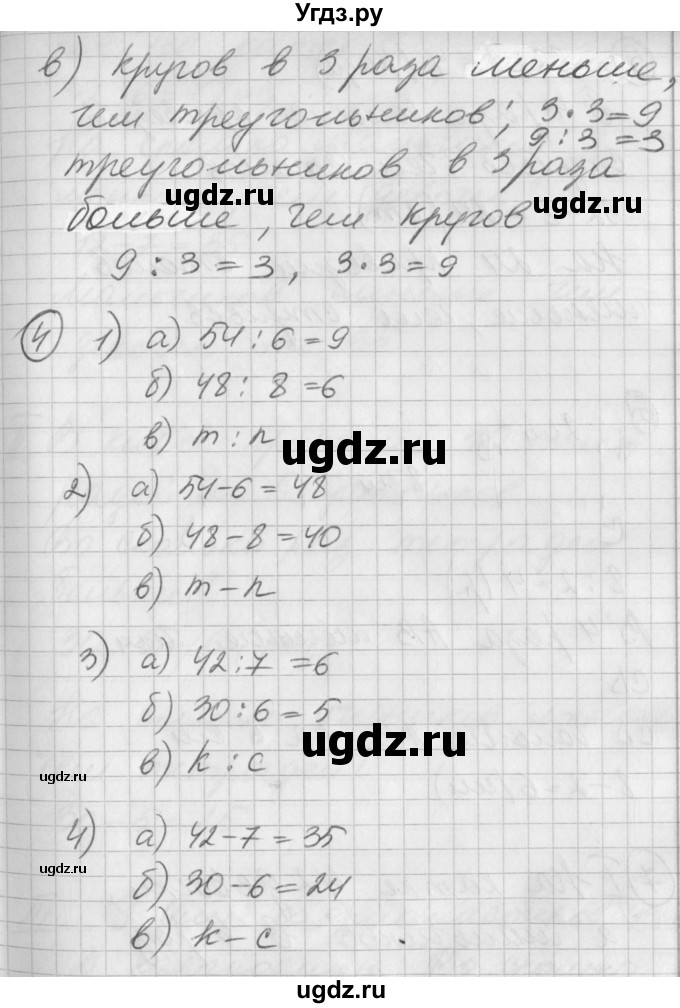 Угдз.ру
в) кругов в 3 раза меньше,
чем треугольников; 3·3=9
9:3=3
треугольников в 3 раза
ugdz.ru
ugdz.ru
больше, чем кругов
9:3=3, 3·3=9
4 1) а) 54:6=9
б) 48:8=6
в) m:n
ugdz.ru
2) а) 54-6=48
б) 48-8=40
в) m-n
3) а) 42:7=6
б) 30:6=5
ugdz.ru
в) k:c
ugdz.ru
4) а) 42-7=35
ugdz.ru
б) 30-6=24
в) k-c
ugdz.ru